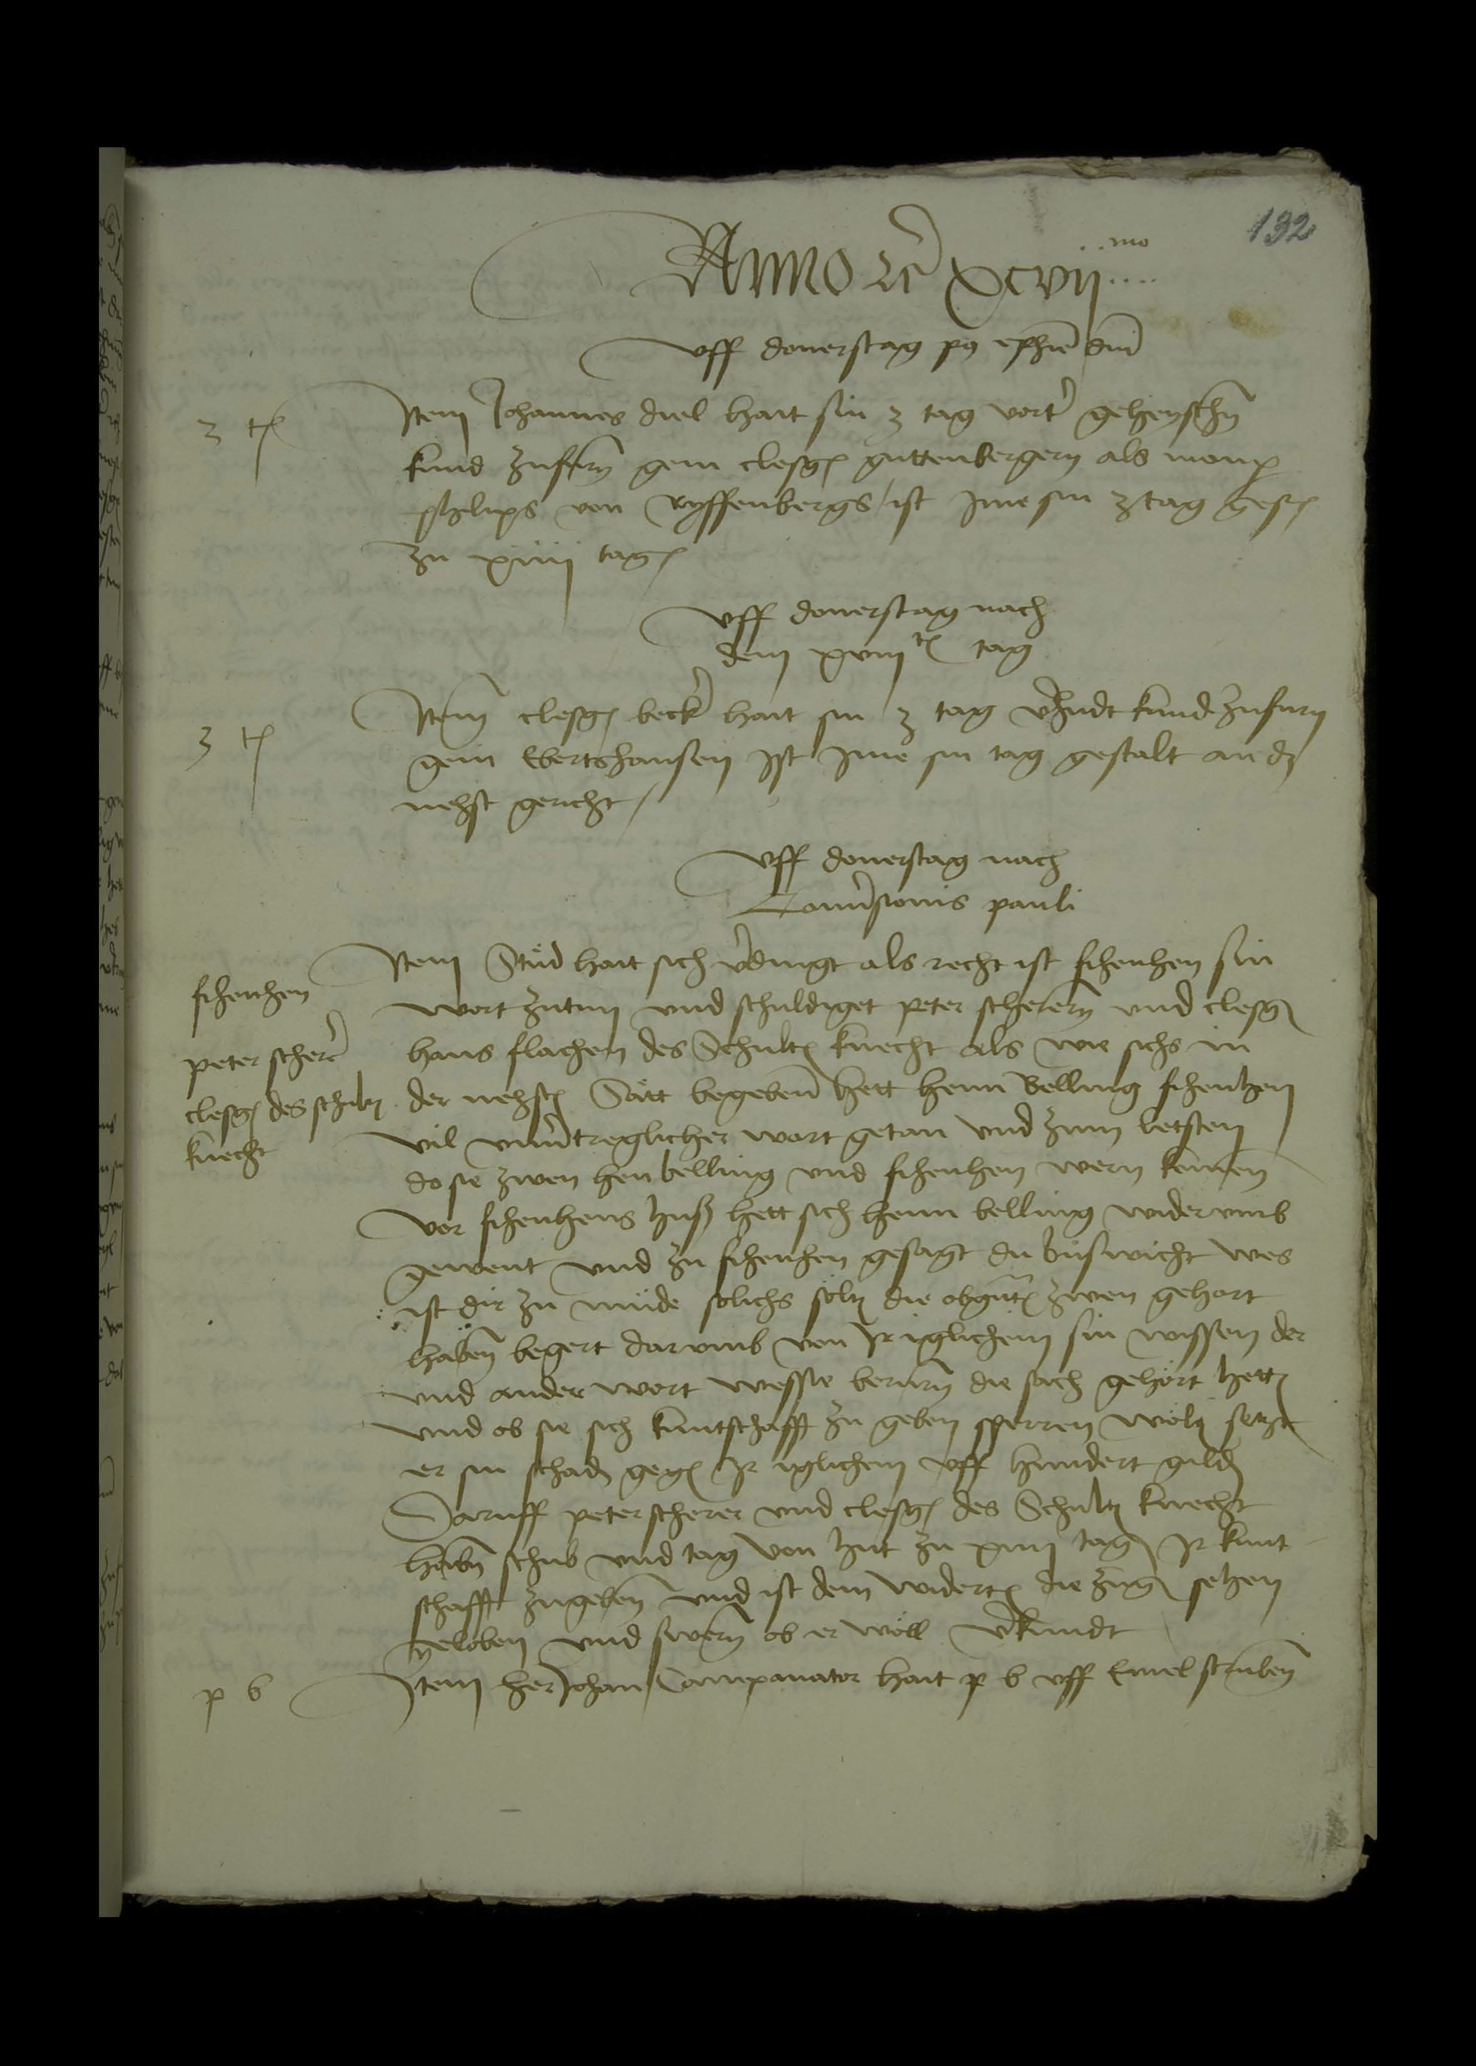 132
Anno etc xcvii mo
Uff donerstag po ephie dni
3 t
Item Johannes diel hait sin 3 tag vort gehenscht
kund zufurn gein clesgin guttenbergern als momp
philips von ryffenbergs ist ime sin 3 tag gest
zu xiiii tagen
Uff donerstag nach
dem xviii t tag
3 t
Item clesgin becker hait sin 3 tag verhudt kund zufurn
gein Ebertshausen ist ime sin tag gestalt an das
nehst gericht
Uff donerstag nach
Conversionis pauli
fihenhen
peter scherer
clesgin des schult
knecht
Item Stud hait sich verdingt als recht ist fihenhen sin
wort zutun und schuldiget peter scherern und clesgin
hans flachen des Schult knecht als wie sichs in
der nehst Satt begeben hett henn Belling fihenhen
vil unvertreglicher wort getan und zum letsten
do sie zwen hen belling und fihenhen wern komen
vor fihenhens huß hett sich henn belling widerumb
gewent und zu fihenhen gesagt du bußwicht wes
ist dir zu mude solichs solt die obgnt zwen gehort
haben begert darumb von ir iglichem sin wissen der
und ander wort wesse berurn die sach gehort hett
und ob sie sich kuntschafft zu geben sperren wolt setzt
er sin schad geg ir iglichem uff hundert guld
Daruff peter scherer und clesgin des Schult knecht
haben schub und tag von hut zu xiiii tagen ir kunt
schafft zugeben und ist dem widert die zugen setzen
geloben und swern ob er woll verkundt
p b
Item her Johan Campanator hait p b uff Emel struben